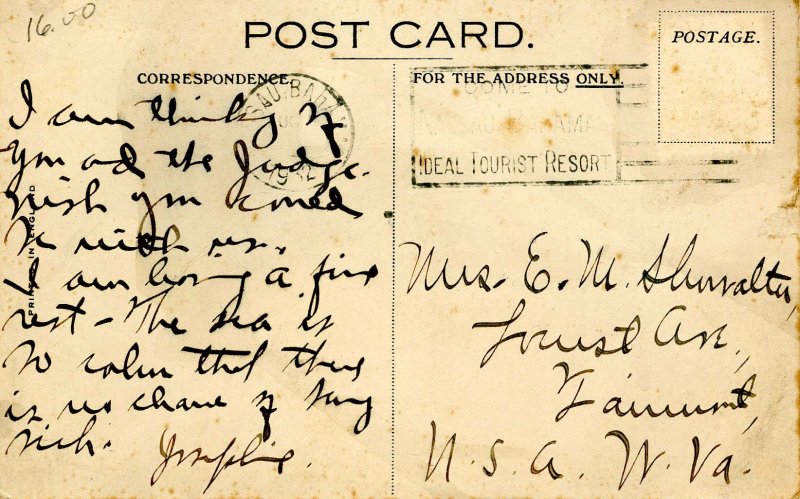 16.00
POST CARD.
CORRESPONDENCE
FOR THE ADDRESS ONLY.
POSTAGE.
COME TO
NASSAU BAHAMA
IDEAL TOURIST RESORT
SAU. BAHAM
PRINTED IN ENGLAND
I am thinking of
you and the Judge.
wish you could
be with us.
I am having a fine
rest - The sea is
so calm that there
is no chance of being
sick.
Josephine.
Mrs. E. M. Showalter,
Locust Ave,
Fairmont,
U. S. A. W. Va.